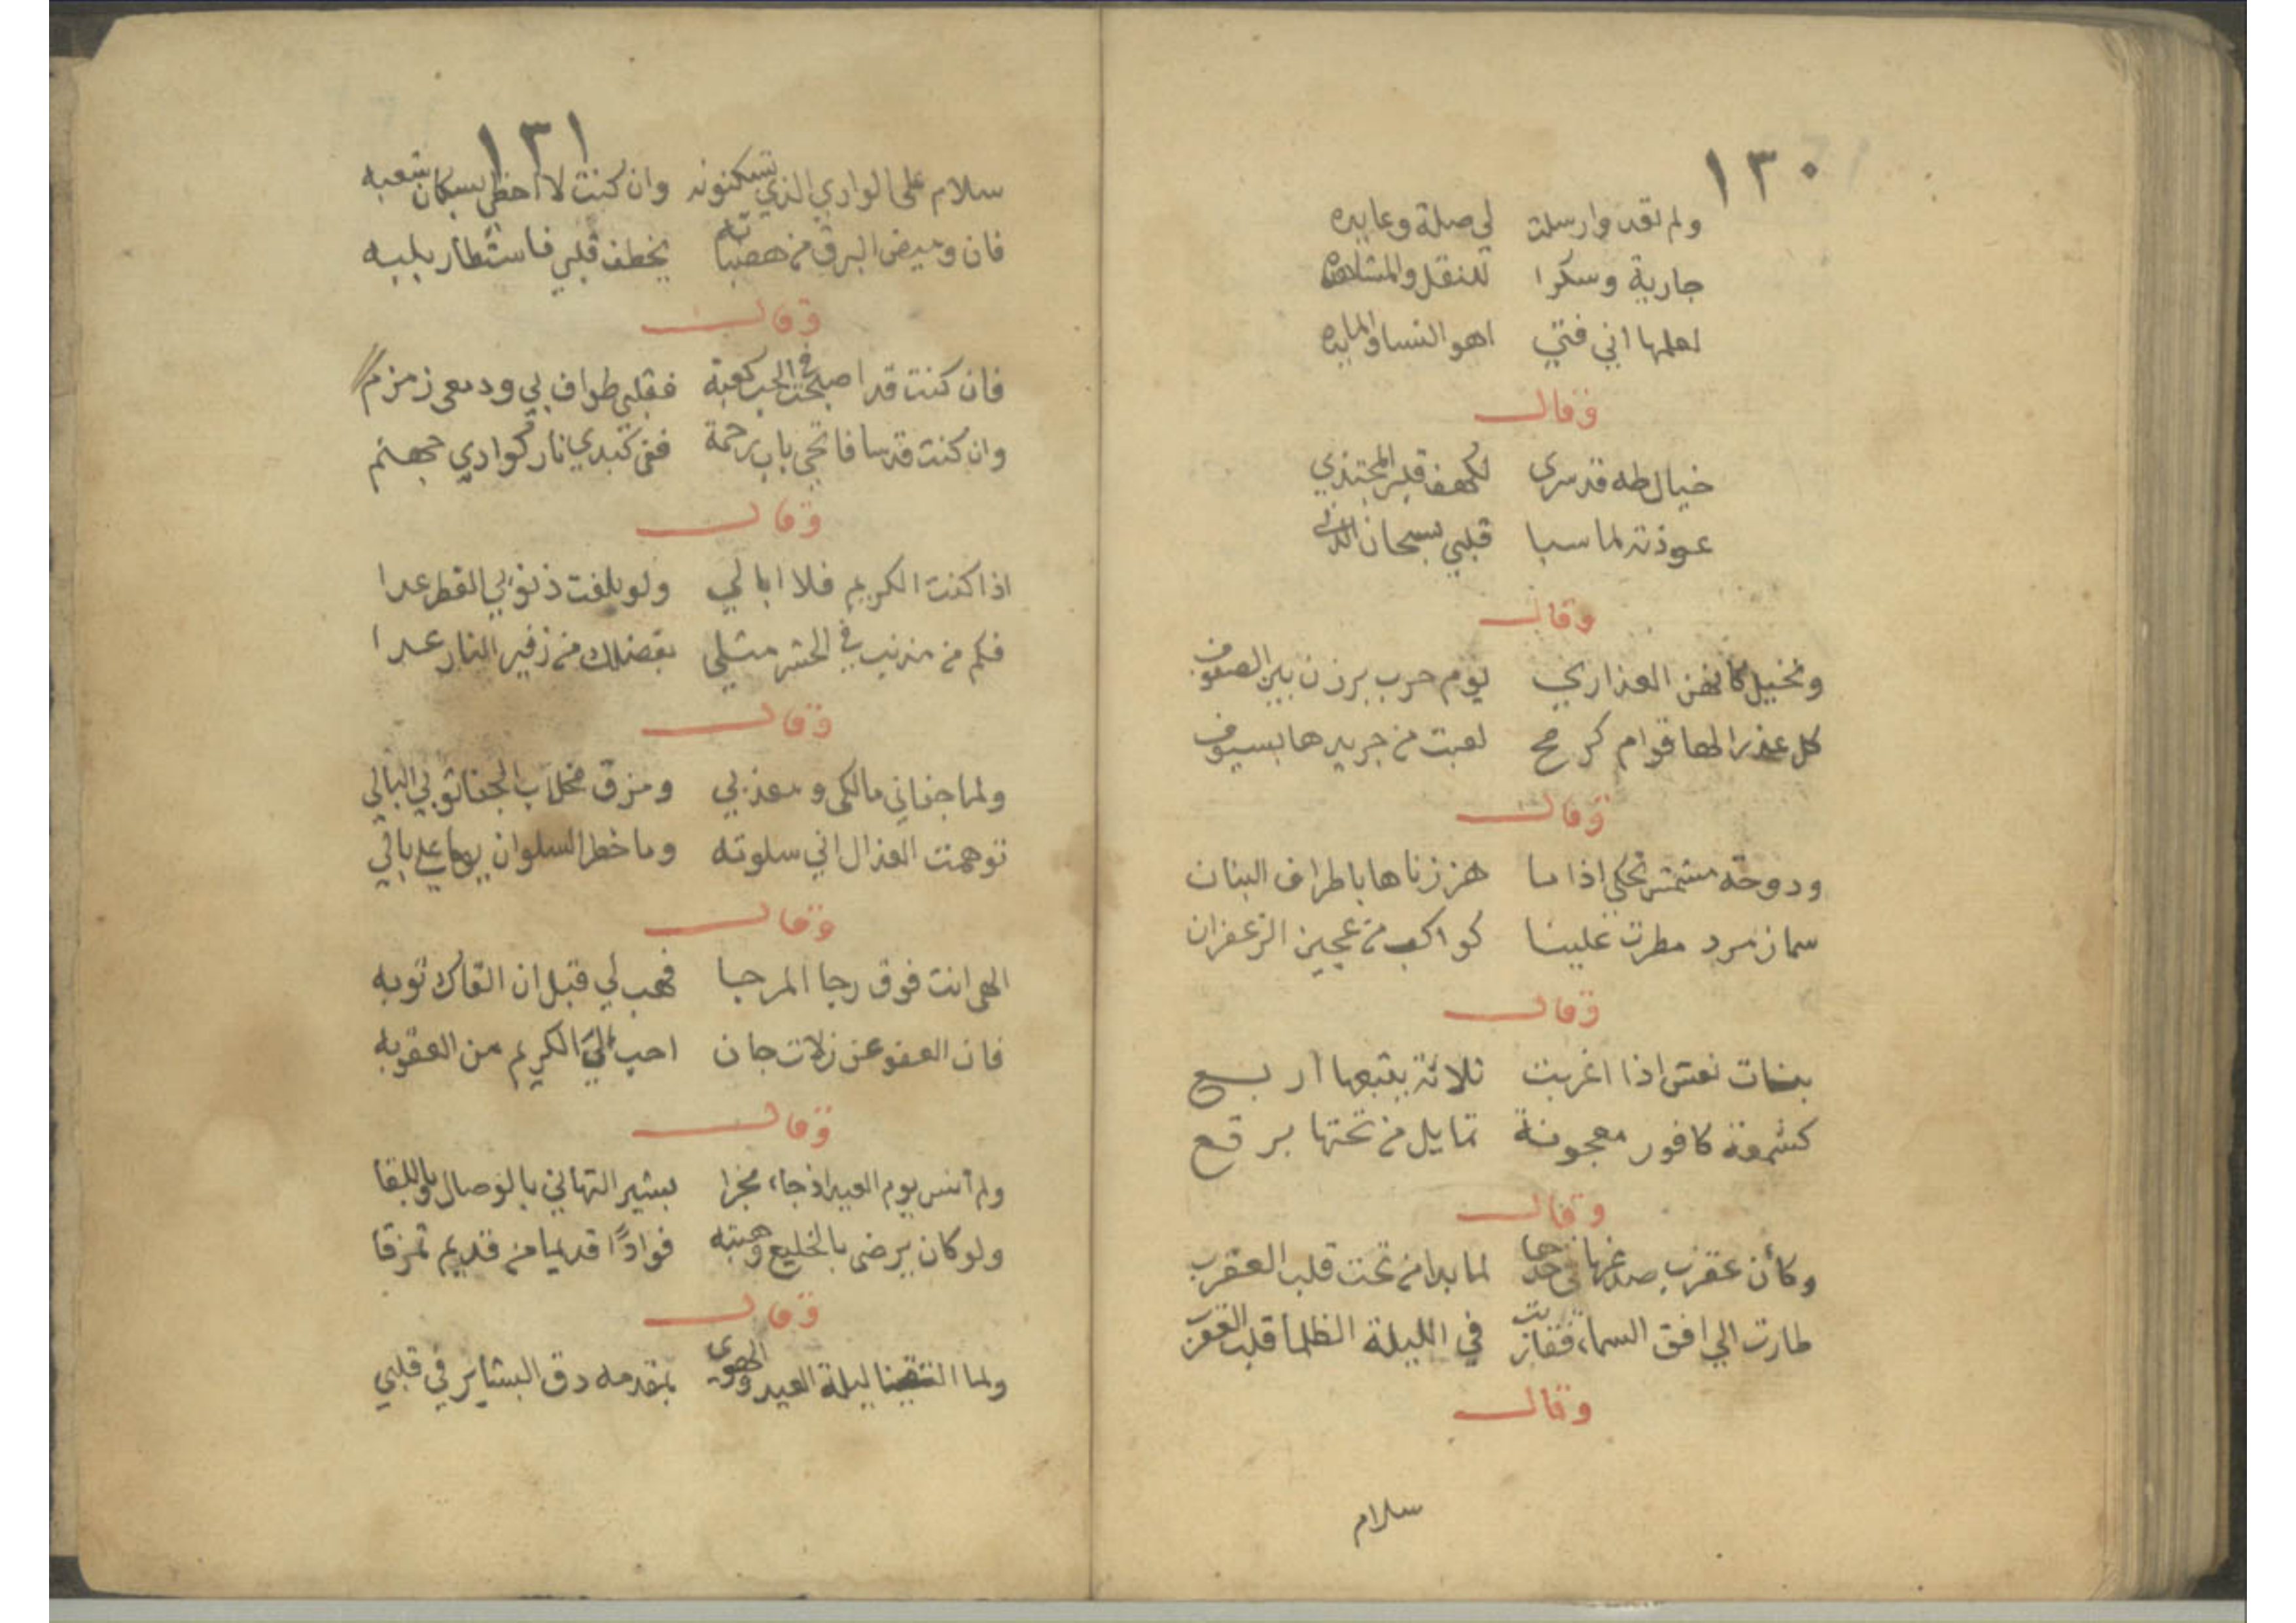 ١٣٠
ولم تعد وارسلت لي صلة وعايده
جارية وسكرا للنقل والمشاهده
لعلمها اني فتي اهو النسا والمايده
وقال
خيال طه قد سرى لكهف قلبي المجتذي
عوذته لما سبا قلبي بسبحان الذي
وقال
ونخيل كانهن العذاري يوم حرب برزن بين الصفوف
كل عذرا لها قوام كرمح لعبت من جريدها بسيوف
وقال
ودوحة مشمش تحكي اذا ما هززناها باطراف البنان
سما زمرد مطرت علينا كواكب من عجين الزعفران
وقال
بنات نعش اذا اغربت ثلاثة يتبعها اربع
كشمعة كافور معجونة تمايل من تحتها برقع
وقال
وكأن عقرب صدغها في خدها لما بدا من تحت قلب العقرب
طارت الي افق السماء فقاربت في الليلة الظلما قلب العقرب
وقال
سلام
١٣١
سلام على الوادي الذي تسكنونه وان كنت لا احظي بسكان شعبه
فان وميض البرق من هضباته يخطف قلبي فاستطار بلبه
وقال
فان كنت قد اصبحت في الحب كعبة فقلبي طواف بي ودمعي زمزم
وان كنت قدسا فاتحي باب رحمة ففي كبدي نار كوادي جهنم
وقال
اذا كنت الكريم فلا ابالي ولو بلغت ذنوبي القطر عدا
فكم من مذنب في الحشر مثلي بفضلك من زفير النار عدا
وقال
ولما جفاني مالكي ومعذبي ومزق مخلاب الجفا ثوبي البالي
توهمت العذال اني سلوته وما خطر السلوان يوما علي بالي
وقال
الهي انت فوق رجا المرجا فهب لي قبل ان القاك توبه
فان العفو عن زلات جان احب الي الكريم من العقوبه
وقال
ولم أنس يوم العيد اذ جاء مخبرا بشير التهاني بالوصال وباللقا
ولو كان يرضى بالخليع وهبته فوادًا قديما من قديم تمزقا
وقال
ولما التقينا ليلة العيد والهوى بمقدمه دق البشاير في قلبي